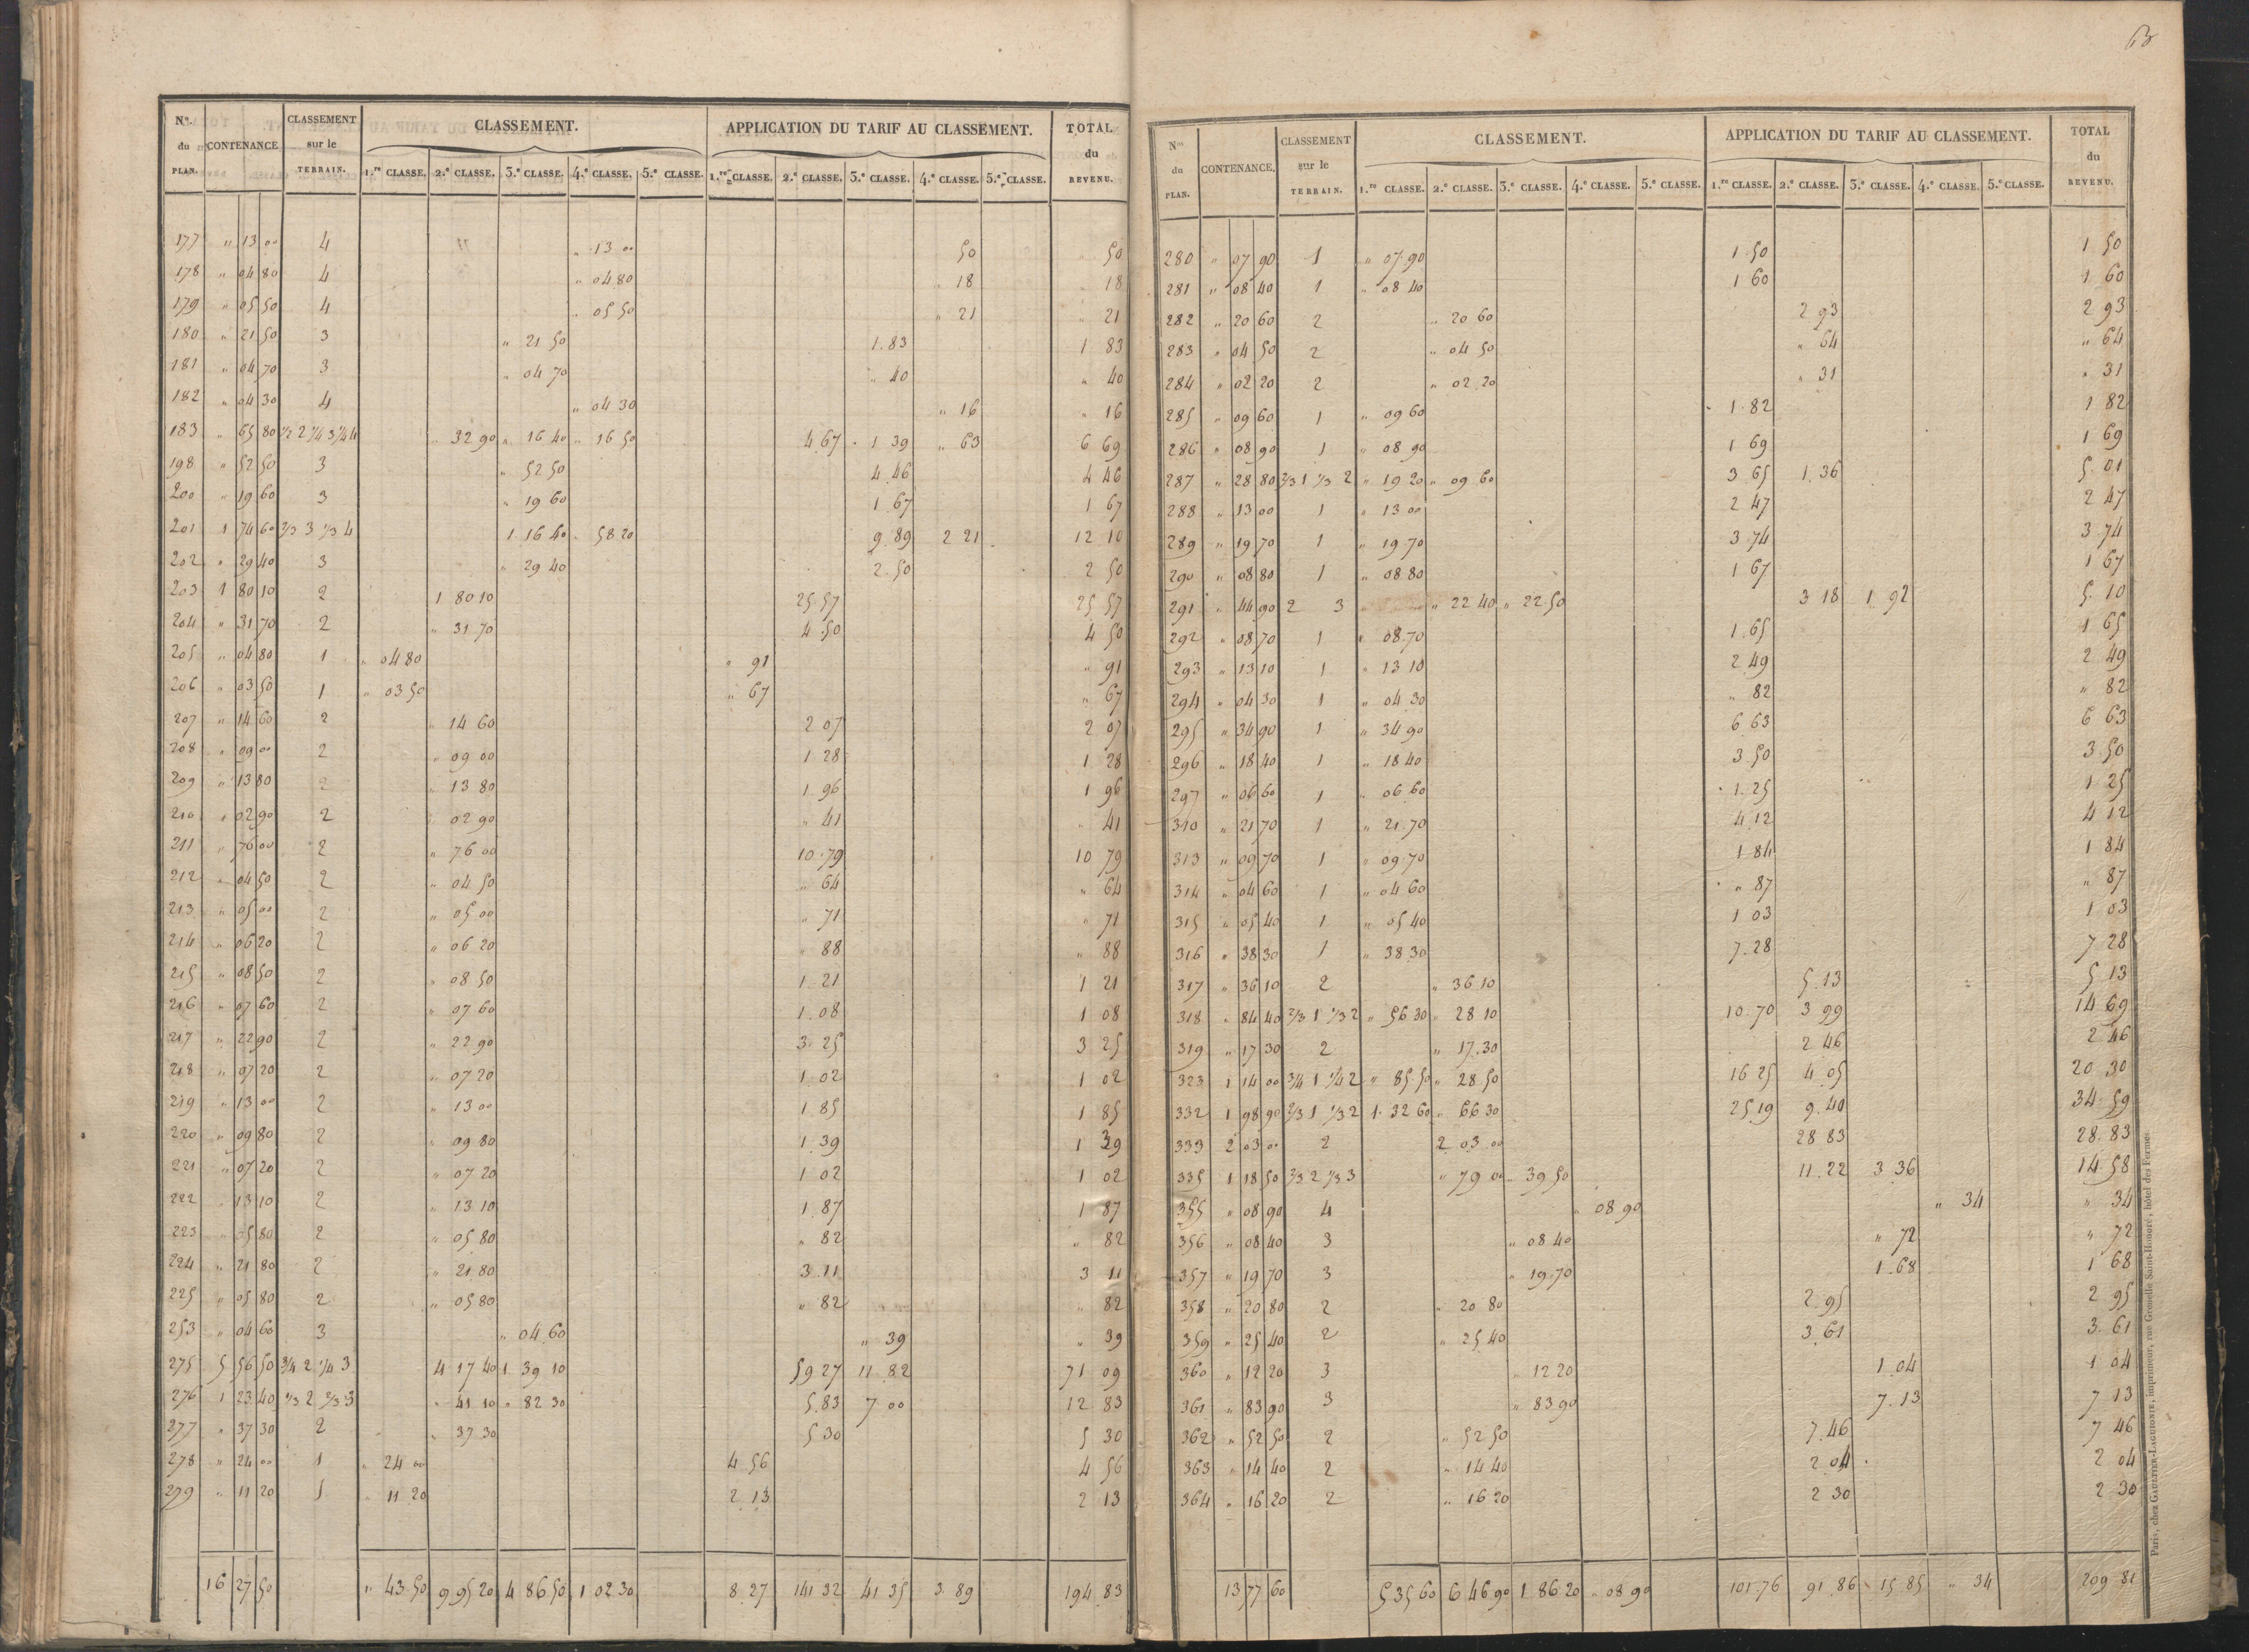 63
N.os du PLAN. CONTENANCE CLASSEMENT sur le TERRAIN. CLASSEMENT. APPLICATION DU TARIF AU CLASSEMENT. TOTAL du REVENU.
1.re CLASSE. 2.e CLASSE. 3.e CLASSE. 4.e CLASSE. 5.e CLASSE. 1.re CLASSE. 2.e CLASSE. 3.e CLASSE. 4.e CLASSE. 5.e CLASSE.
177 " 13 00 4 " 13 00 50 " 50
178 " 04 80 4 " 04 80 " 18 " 18
179 " 05 50 4 " 05 50 " 21 " 21
180 " 21 50 3 " 21 50 1.83 1 83
181 " 04 70 3 " 04 70 " 40 " 40
182 " 04 30 4 " 04 30 " 16 " 16
183 " 65 80 1/2 2 1/4 3 1/4 4 " 32 90 " 16 40 " 16 50 4.67 1 39 " 63 6 69
198 " 52 50 3 " 52 50 4.46 4 46
200 " 19 60 3 " 19 60 1 67 1 67
201 1 74 60 2/3 3 1/3 4 1 16 40 " 58 20 9.89 2 21 12 10
202 " 29 40 3 " 29 40 2.50 2 50
203 1 80 10 2 1 80 10 25.57 25 57
204 " 31 70 2 " 31 70 4.50 4 50
205 " 04 80 1 " 04 80 " 91 " 91
206 " 03 50 1 " 03 50 " 67 " 67
207 " 14 60 2 " 14 60 2 07 2 07
208 " 09 00 2 " 09 00 1.28 1 28
209 " 13 80 2 " 13 80 1.96 1 96
210 " 02 90 2 " 02 90 " 41 " 41
211 " 76 00 2 " 76 00 10.79 10 79
212 " 04 50 2 " 04 50 " 64 " 64
213 " 05 00 2 " 05 00 " 71 " 71
214 " 06 20 2 " 06 20 " 88 " 88
215 " 08 50 2 " 08 50 1.21 1 21
216 " 07 60 2 " 07 60 1.08 1 08
217 " 22 90 2 " 22 90 3.25 3 25
218 " 07 20 2 " 07 20 1.02 1 02
219 " 13 00 2 " 13 00 1.85 1 85
220 " 09 80 2 " 09 80 1.39 1 39
221 " 07 20 2 " 07 20 1 02 1 02
222 " 13 10 2 " 13 10 1.87 1 87
223 " 05 80 2 " 05 80 " 82 " 82
224 " 21 80 2 " 21 80 3.11 3 11
225 " 05 80 2 " 05 80 " 82 " 82
253 " 04 60 3 " 04 60 " 39 " 39
275 5 56 50 3/4 2 1/4 3 4 17 40 1 39 10 59 27 11.82 71 09
276 1 23 40 1/3 2 2/3 3 " 41 10 " 82 30 5.83 7.00 12 83
277 " 37 30 2 " 37 30 5 30 5 30
278 " 24 00 1 " 24 00 4.56 4 56
279 " 11 20 1 " 11 20 2.13 2 13
16 27 50 " 43.50 9 95 20 4 86 50 1 02 30 8.27 141 32 41 35 3.89 194 83
N.os du PLAN. CONTENANCE. CLASSEMENT sur le TERRAIN. CLASSEMENT. APPLICATION DU TARIF AU CLASSEMENT. TOTAL du REVENU.
1.re CLASSE. 2.e CLASSE. 3.e CLASSE. 4.e CLASSE. 5.e CLASSE. 1.re CLASSE. 2.e CLASSE. 3.e CLASSE. 4.e CLASSE. 5.e CLASSE.
280 " 07 90 1 " 07.90 1.50 1 50
281 " 08 40 1 " 08 40 1 60 1 60
282 " 20 60 2 " 20 60 2 93 2 93
283 " 04 50 2 " 04 50 " 64 " 64
284 " 02 20 2 " 02.20 " 31 " 31
285 " 09 60 1 " 09 60 1.82 1 82
286 " 08 90 1 " 08 90 1 69 1 69
287 " 28 80 2/3 1 1/3 2 " 19 20 " 09 60 3 65 1.36 5.01
288 " 13 00 1 " 13 00 2 47 2 47
289 " 19 70 1 " 19.70 3.74 3.74
290 " 08 80 1 " 08 80 1 67 1 67
291 " 44 90 2 3 " 22 40 " 22.50 3 18 1.92 5.10
292 " 08 70 1 " 08.70 1.65 1 65
293 " 13 10 1 " 13 10 2 49 2 49
294 " 04 30 1 " 04.30 " 82 " 82
295 " 34 90 1 " 34 90 6 63 6 63
296 " 18 40 1 " 18 40 3.50 3.50
297 " 06 60 1 " 06 60 1.25 1 25
310 " 21 70 1 " 21.70 4.12 4 12
313 " 09 70 1 " 09.70 1 84 1 84
314 " 04 60 1 " 04 60 " 87 " 87
315 " 05 40 1 " 05 40 1 03 1 03
316 " 38 30 1 " 38 30 7.28 7 28
317 " 36 10 2 " 36.10 5.13 5 13
318 " 84 40 2/3 1 1/3 2 " 56 30 " 28 10 10.70 3 99 14 69
319 " 17 30 2 " 17.30 2 46 2 46
323 1 14 00 3/4 1 1/4 2 " 85.50 " 28 50 16 25 4 05 20 30
332 1 98 90 2/3 1 1/3 2 1.32 60 " 66 30 25 19 9.40 34 59
333 2 03 00 2 2 03 00 28 83 28.83
335 1 18 50 2/3 2 1/3 3 " 79 00 " 39 50 11.22 3.36 14 58
355 " 08 90 4 " 08 90 " 34 " 34
356 " 08 40 3 " 08 40 " 72 " 72
357 " 19 70 3 " 19.70 1.68 1 68
358 " 20 80 2 " 20 80 2.95 2 95
359 " 25 40 2 " 25 40 3.61 3.61
360 " 12 20 3 " 12 20 1.04 1 04
361 " 83 90 3 " 83 90 7.13 7 13
362 " 52 50 2 " 52 50 7.46 7 46
363 " 14 40 2 " 14 40 2 04 2 04
364 " 16 20 2 " 16 20 2 30 2 30
13 77 60 5 35 60 6 46 90 1 86 20 " 08 90 101.76 91.86 15 85 " 34 209 81
Paris, chez GAULTIER-LAGUIONIE, imprimeur, rue Grenelle Saint-Honoré, hôtel des Fermes.